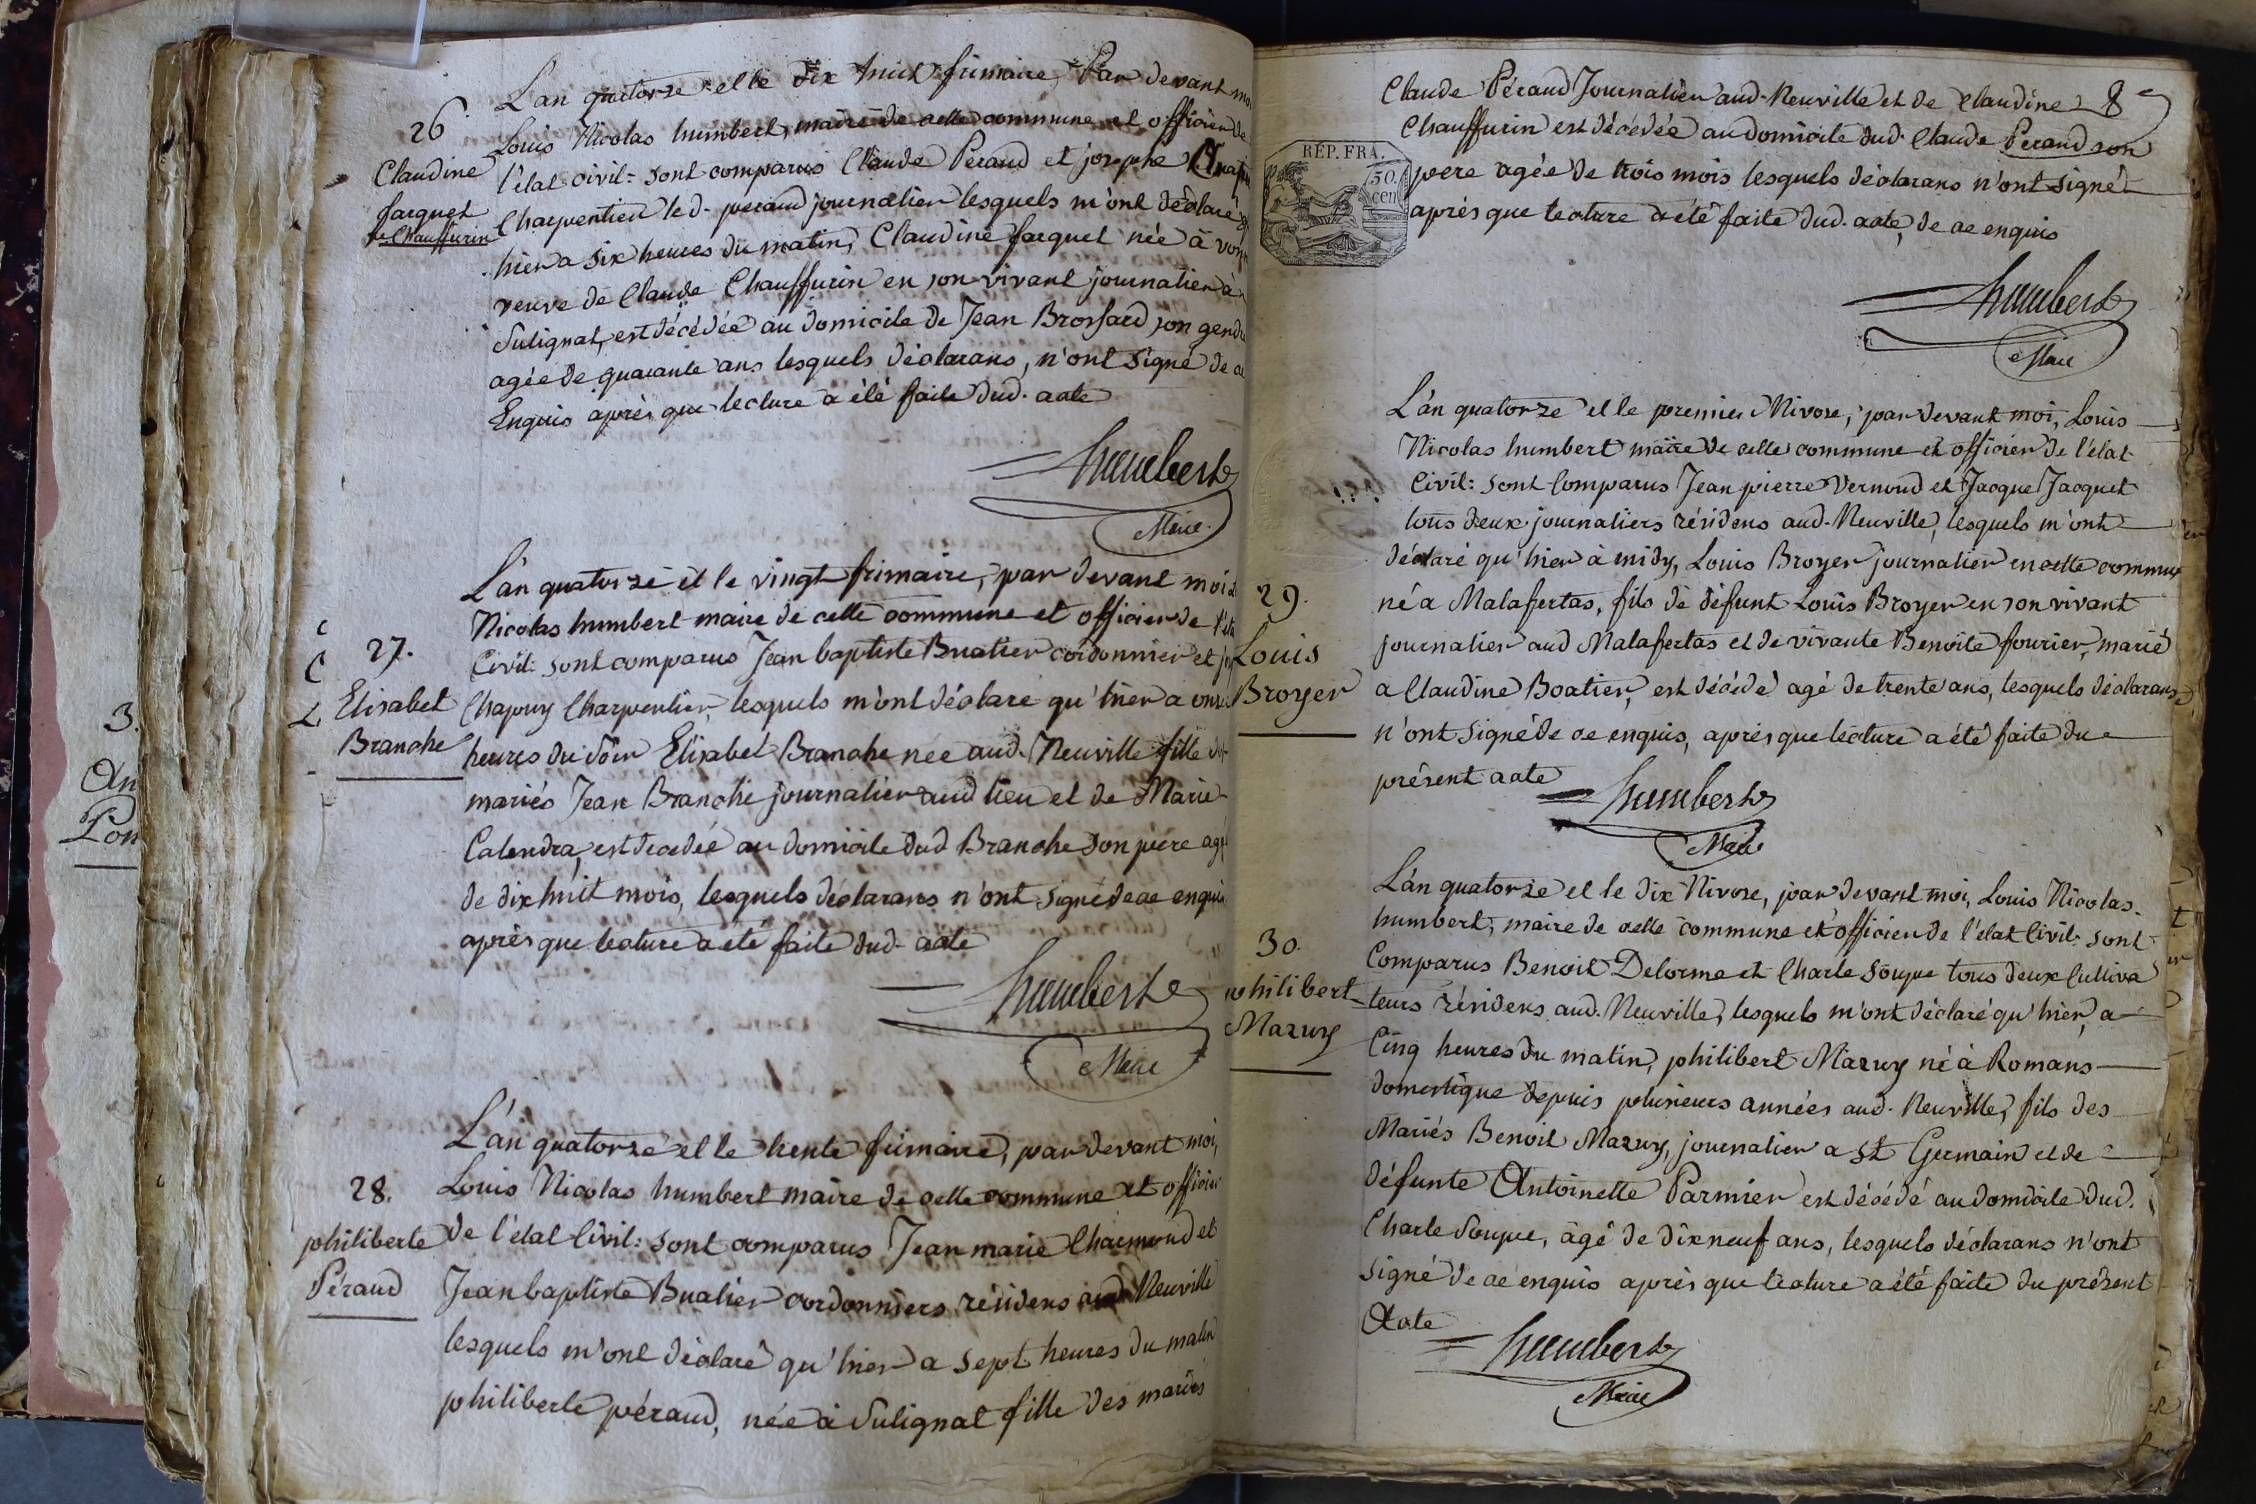 26.
Claudine
Jacquet
ve Chauffurin
L'an quatorze et le dix huit frimaire, Par devant moi
Louis Nicolas humbert, maire de cette commune et officier de
l'état civil: sont comparus Claude Peraud et josephe
Charpentier led. peraud journalier lesquels m'ont déclaré
hier a six heures du matin, Claudine Jacquet née à
veuve de Claude Chauffurin en son vivant journalier à
Sulignat, est décédée au domicile de Jean Brossard son gendre
agée de quarante ans lesquels déclarans, n'ont signé de ce
Enquis après que lecture a été faite dud. acte
humbert
Maire
27.
Elisabet
Branche
L'an quatorze et le vingt frimaire, par devant moi
Nicolas humbert maire de cette commune et officier de l'éta
Civil: sont comparus Jean baptiste Buatier cordonnier et
Chapuy Charpentier, lesquels m'ont déclaré qu'hier a onze
heures du soir Elisabet Branche née aud. Neuville fille des
mariés Jean Branche journalier aud lieu et de Marie
Calendra, est decedée au domicile dud Branche son père agé
de dix huit mois, lesquels déclarans n'ont signé de ce enquis
après que lecture a été faite dud. acte
humbert
Maire
28.
philiberte
Péraud
L'an quatorze et le trente frimaire, par devant moi,
Louis Nicolas humbert maire de cette commune et officier
de l'état Civil: sont comparus Jean marie Charmond et
Jean baptiste Buatier cordonniers résidens aud Neuville
lesquels m'ont déclaré qu'hier a sept heures du matin
philiberte péraud, née à Sulignat fille des mariés
3.
An
8
Claude Péraud Journalier aud. Neuville et de Claudine
Chauffurin est décédée au domicile dud. Claude Peraud son
père agée de trois mois lesquels déclarans n'ont signé
après que lecture a été faite dud. acte, de ce enquis
RÉP. FRA.
50
cen
humbert
Maire
29.
Louis
Broyer
L'an quatorze et le premier Nivose, par devant moi, Louis
Nicolas humbert maire de cette commune et officier de l'état
Civil: sont Comparus Jean pierre Vernoud et Jacque Jacquet
tous deux journaliers résidens aud. Neuville, lesquels m'ont
déclaré qu'hier à midy, Louis Broyer journalier en cette commune
né a Malafertas, fils de défunt Louis Broyer en son vivant
journalier aud Malafertas et de vivante Benoite fourier, marié
a Claudine Boatier, est décédé agé de trente ans, lesquels déclarans
n'ont signé de ce enquis, après que lecture a été faite du
présent acte
humbert
Maire
30.
philibert
Mazuy
L'an quatorze et le dix Nivose, par devant moi, Louis Nicolas
humbert, maire de cette commune et officier de l'état Civil: sont
Comparus Benoit Delorme et Charle Soupe tous deux Cultiva
teurs résidens aud. Neuville, lesquels m'ont déclaré qu'hier, a
Cinq heures du matin, philibert Mazuy né à Romans
domestique depuis plusieurs années aud. Neuville, fils des
Mariés Benoit Mazuy, journalier a St Germain et de
défunte Antoinette Parmier est décédé au domicile dud.
Charle Soupe, agé de dix neuf ans, lesquels déclarans n'ont
signé de ce enquis après que lecture a été faite du présent
Acte
humbert
Maire